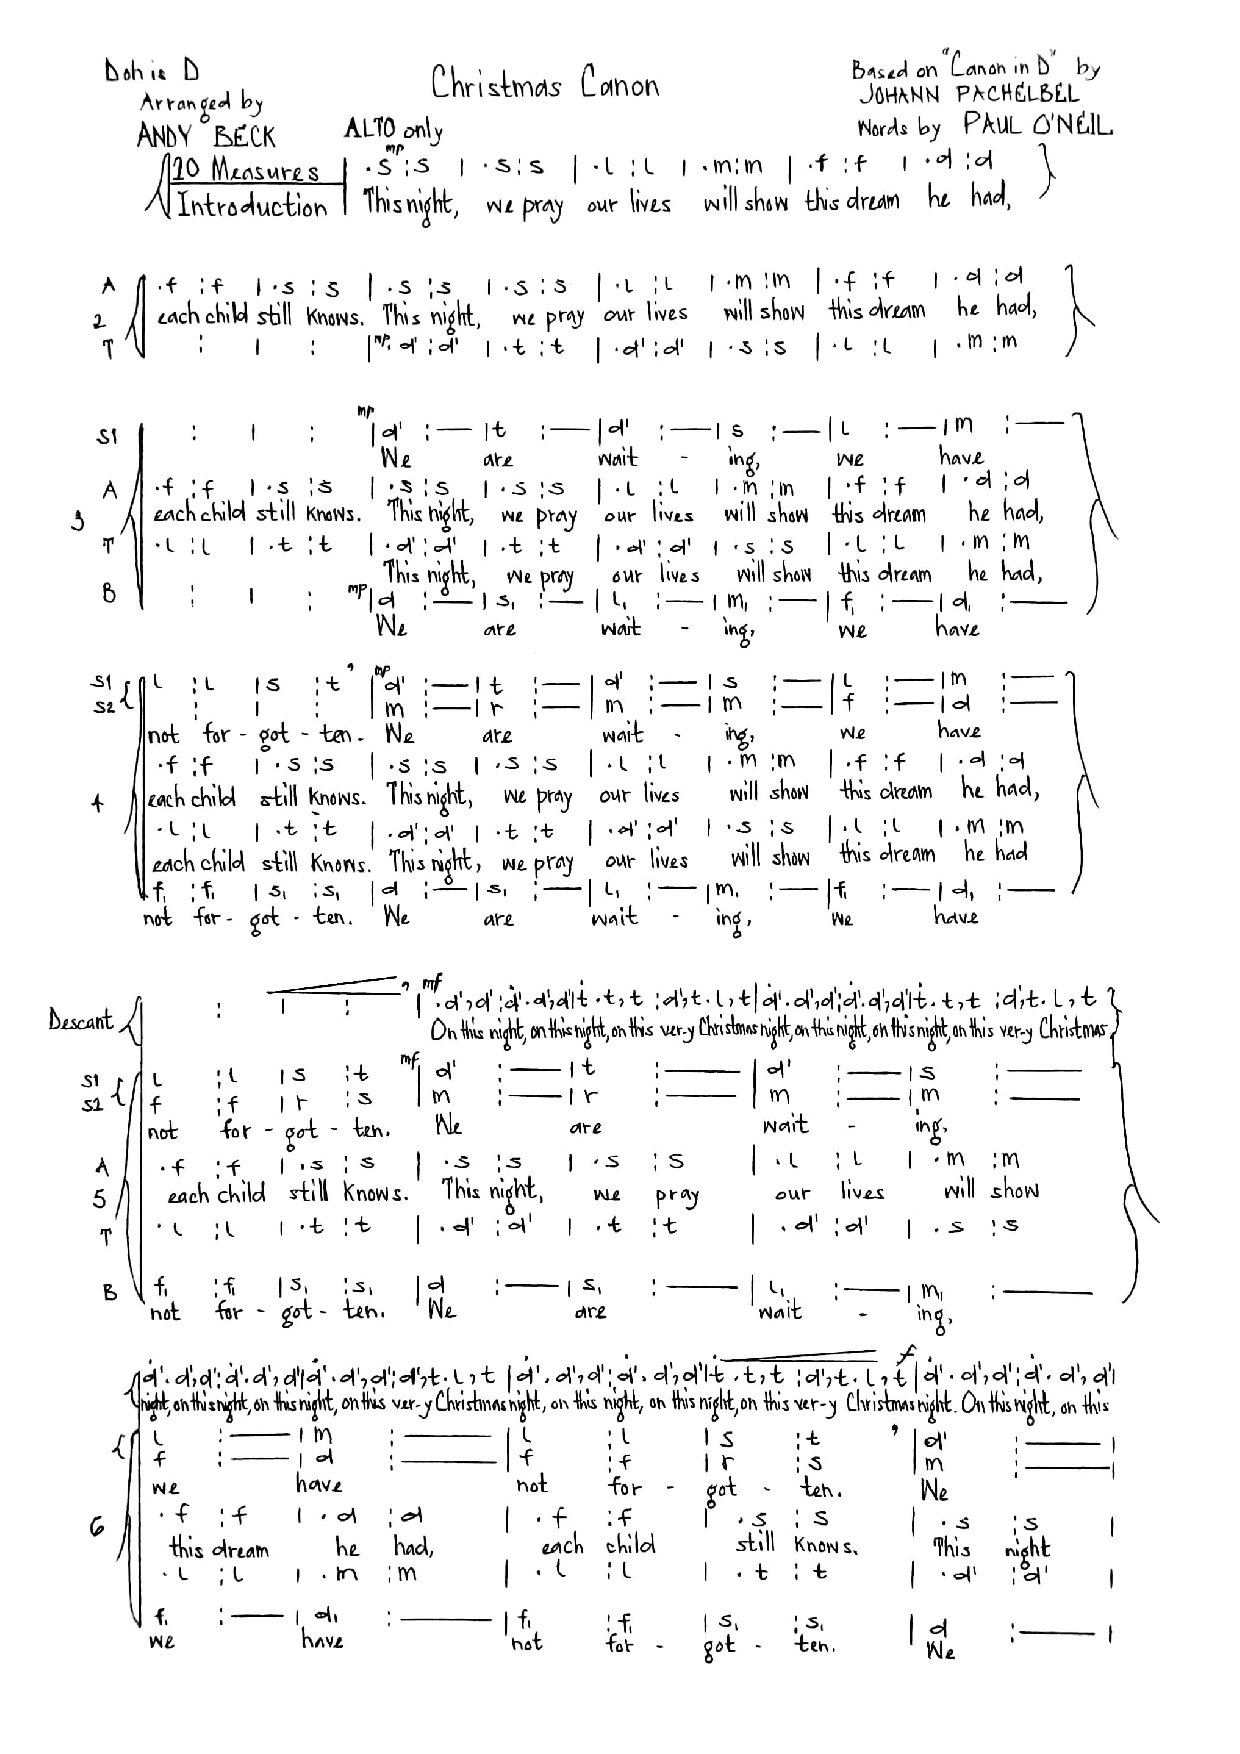 Doh is D
Christmas Canon
Based on "Canon in D" by
Arranged by
JOHANN PACHELBEL
ANDY BECK
ALTO only
Words by PAUL O'NEIL
mp
20 Measures | .s :s | .s :s | .l :l | .m :m | .f :f | .d :d
Introduction This night, we pray our lives will show this dream he had,
A .f :f | .s :s | .s :s | .s :s | .l :l | .m :m | .f :f | .d :d
2 each child still knows. This night, we pray our lives will show this dream he had,
T : | : | mp .d' :d' | .t :t | .d' :d' | .s :s | .l :l | .m :m
mp
S1 : | : | d' :— | t :— | d' :— | s :— | l :— | m :—
We are wait - ing, we have
A .f :f | .s :s | .s :s | .s :s | .l :l | .m :m | .f :f | .d :d
3 each child still knows. This night, we pray our lives will show this dream he had,
T .l :l | .t :t | .d' :d' | .t :t | .d' :d' | .s :s | .l :l | .m :m
This night, we pray our lives will show this dream he had,
B : | : mp | d :— | s, :— | l, :— | m, :— | f, :— | d, :—
We are wait - ing, we have
S1 l :l | s :t ' | mp d' :— | t :— | d' :— | s :— | l :— | m :—
S2 : | : | m :— | r :— | m :— | m :— | f :— | d :—
not for - got - ten. We are wait - ing, we have
.f :f | .s :s | .s :s | .s :s | .l :l | .m :m | .f :f | .d :d
4 each child still knows. This night, we pray our lives will show this dream he had,
.l :l | .t :t | .d' :d' | .t :t | .d' :d' | .s :s | .l :l | .m :m
each child still knows. This night, we pray our lives will show this dream he had
f, :f, | s, :s, | d :— | s, :— | l, :— | m, :— | f, :— | d, :—
not for - got - ten. We are wait - ing, we have
Descant : | : ' | mf .d',d' :d'.d',d' | t.t,t :d',t.l,t | d'.d',d' :d'.d',d' | t.t,t :d',t.l,t
On this night, on this night, on this ver-y Christmas night, on this night, on this night, on this ver-y Christmas
S1 l :l | s :t mf | d' :— | t :— | d' :— | s :—
S2 f :f | r :s | m :— | r :— | m :— | m :—
not for - got - ten. We are wait - ing,
A .f :f | .s :s | .s :s | .s :s | .l :l | .m :m
5 each child still knows. This night, we pray our lives will show
T .l :l | .t :t | .d' :d' | .t :t | .d' :d' | .s :s
B f, :f, | s, :s, | d :— | s, :— | l, :— | m, :—
not for - got - ten. We are wait - ing,
f
d'.d',d' :d'.d',d' | d'.d',d' :d',t.l,t | d'.d',d' :d'.d',d' | t.t,t :d',t.l,t | d'.d',d' :d'.d',d' |
night, on this night, on this night, on this ver-y Christmas night, on this night, on this night, on this ver-y Christmas night. On this night, on this
l :— | m :— | l :l | s :t ' | d' :— |
f :— | d :— | f :f | r :s | m :— |
we have not for - got - ten. We
.f :f | .d :d | .f :f | .s :s | .s :s |
6 this dream he had, each child still knows. This night
.l :l | .m :m | .l :l | .t :t | .d' :d' |
f, :— | d, :— | f, :f, | s, :s, | d :— |
we have not for - got - ten. We